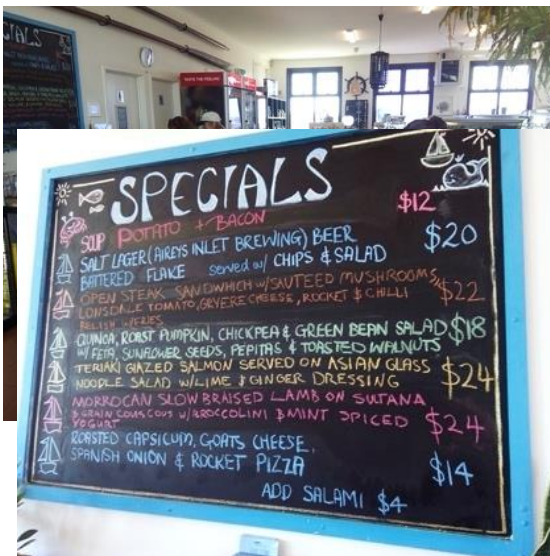 TASTE THE FEELING
SPECIALS
SOUP POTATO + BACON $12
SALT LAGER (AIREYS INLET BREWING) BEER
BATTERED FLAKE served w/ CHIPS & SALAD $20
OPEN STEAK SANDWHICH w/SAUTEED MUSHROOMS,
LONSDALE TOMATO, GRYERE CHEESE, ROCKET & CHILLI $22
RELISH w/FRIES
QUINOA, ROAST PUMPKIN, CHICKPEA & GREEN BEAN SALAD $18
W/ FETA, SUNFLOWER SEEDS, PEPITAS & TOASTED WALNUTS
TERIAKI GLAZED SALMON SERVED ON ASIAN GLASS
NOODLE SALAD W/LIME & GINGER DRESSING $24
MORROCAN SLOW BRAISED LAMB ON SULTANA
& GRAIN COUS COUS W/BROCCOLINI & MINT SPICED $24
YOGURT
ROASTED CAPSICUM, GOATS CHEESE,
SPANISH ONION & ROCKET PIZZA $14
ADD SALAMI $4